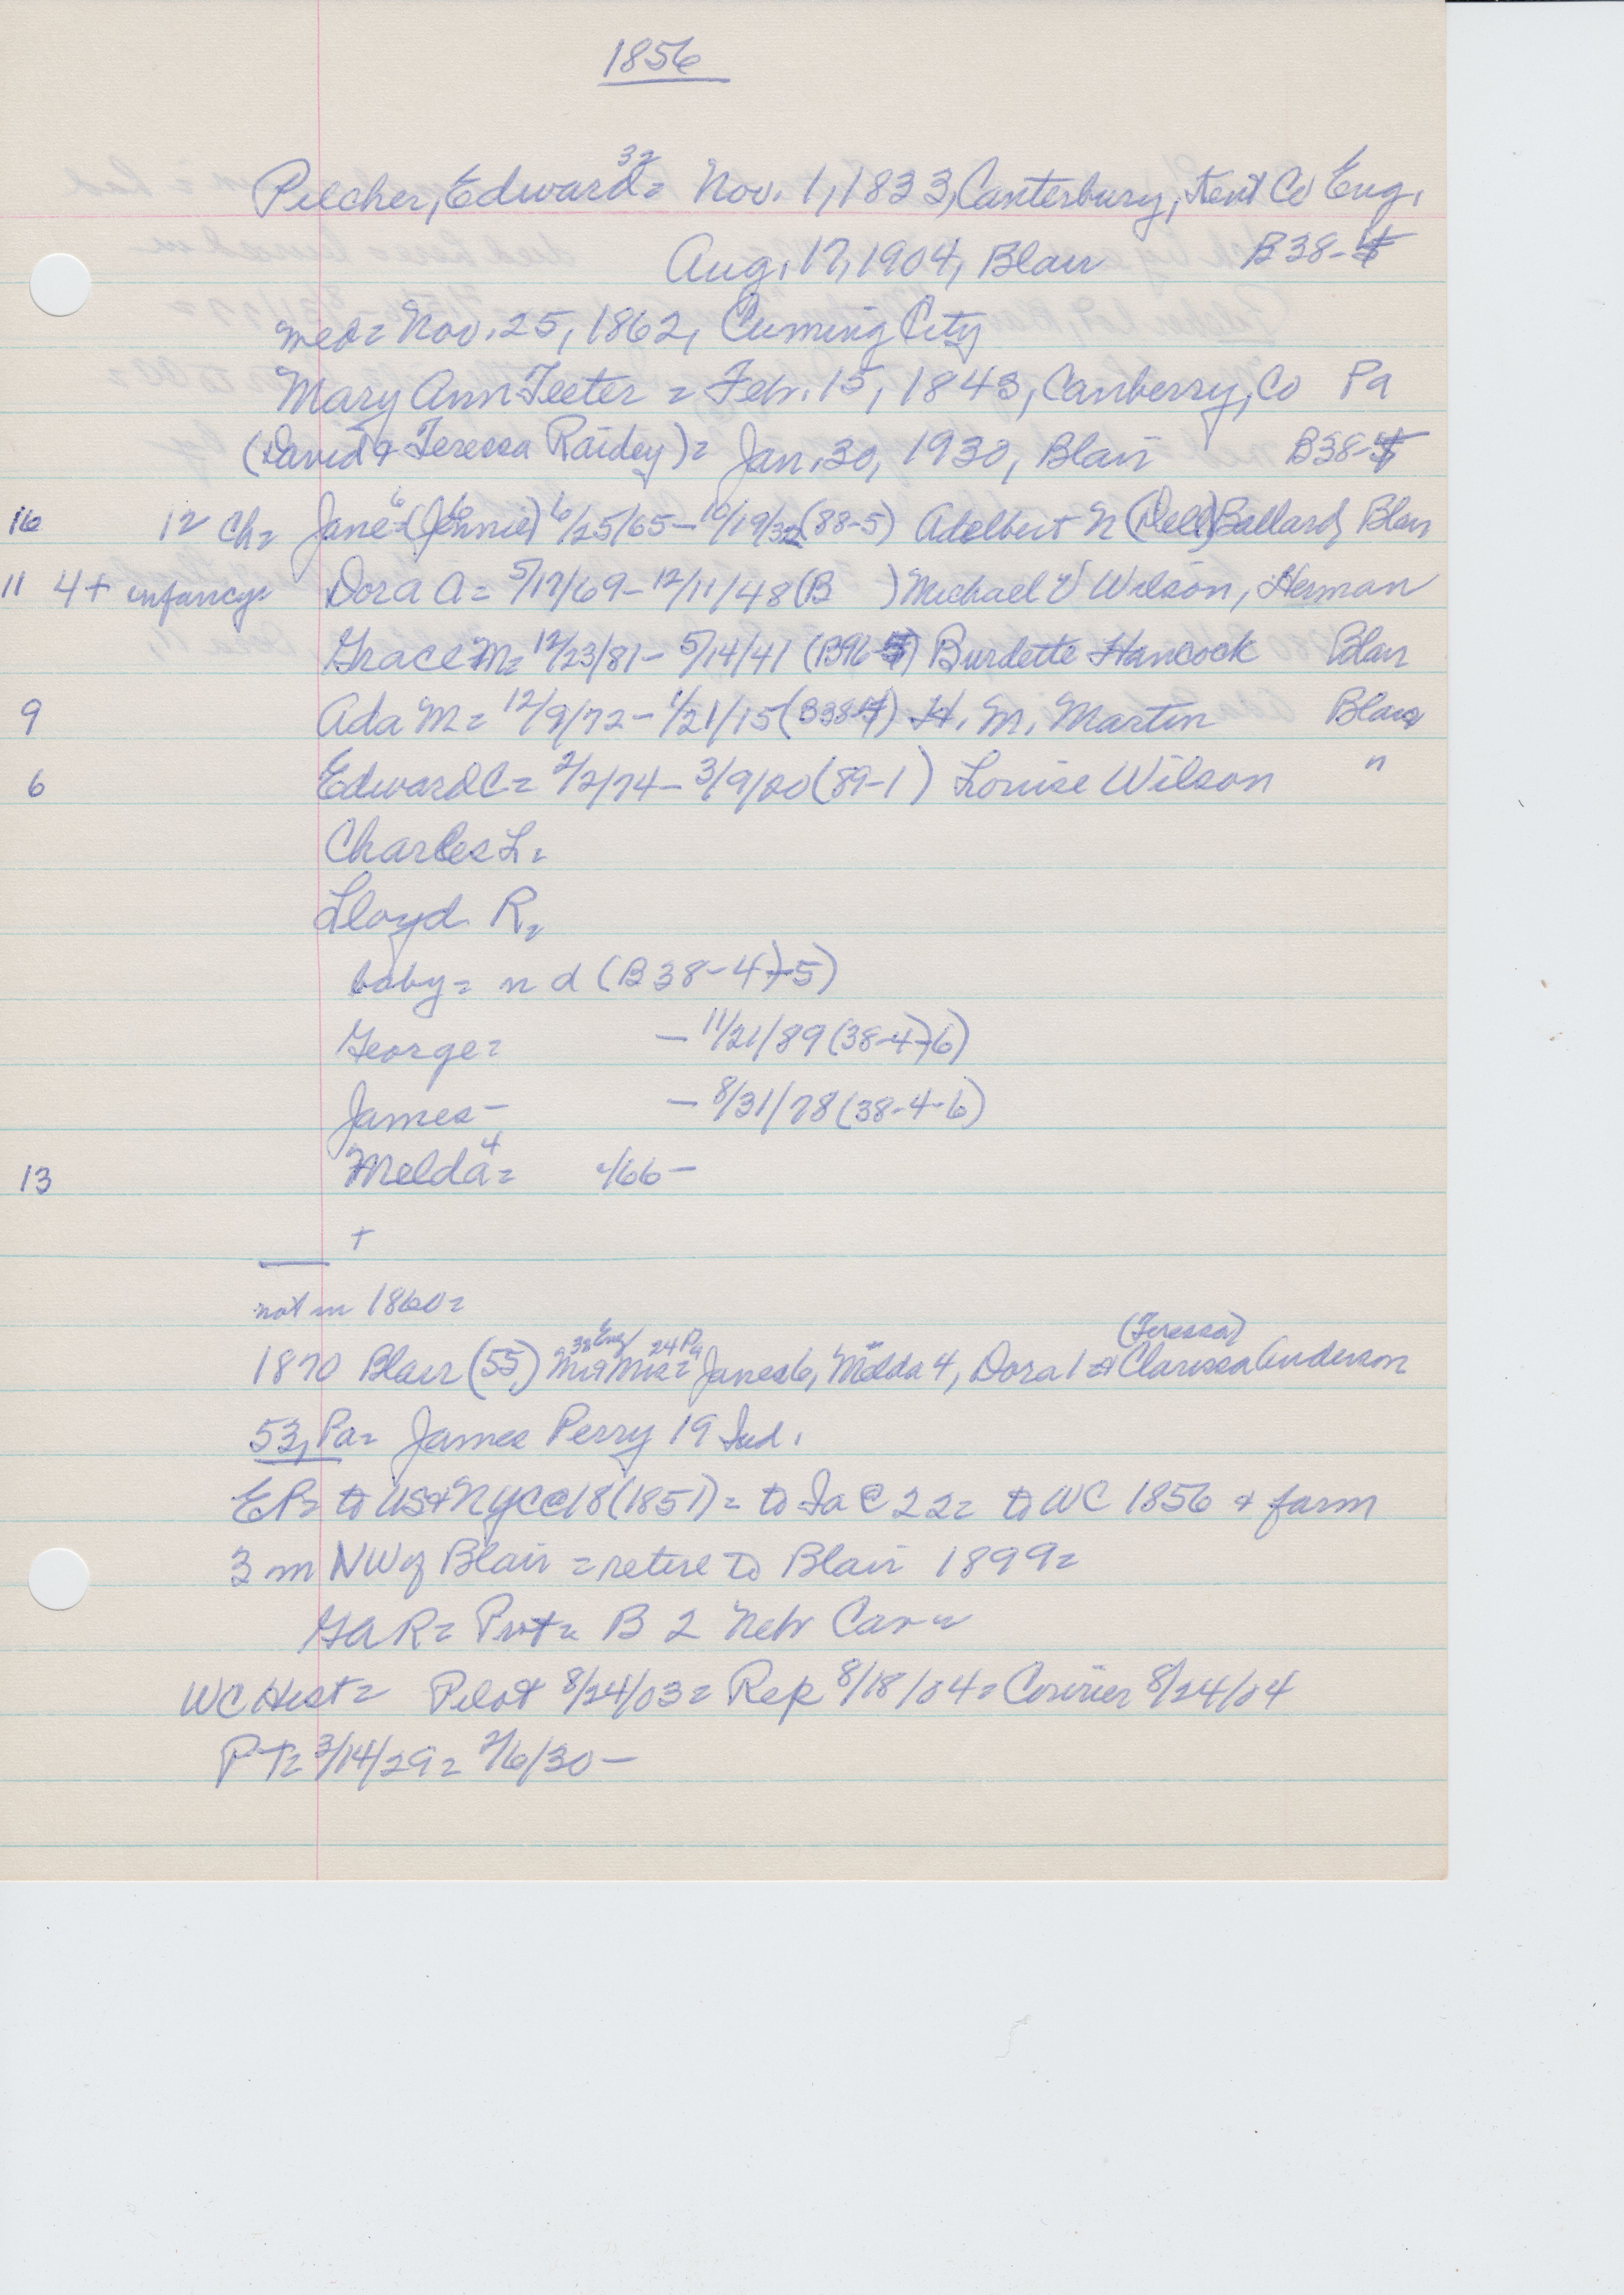 1856
Pilcher, Edward 32 = Nov. 1, 1833, Canterbury, Kent Co Eng.
Aug. 17, 1904, Blair B38-4
med = Nov. 25, 1862, Cuming City
Mary Ann Teeter = Feb. 15, 1843, Canberry, Co Pa
(David & Teressa Raidey) = Jan. 30, 1930, Blair B38-4
16 12 Ch = Jane 6 = (Jennie) 6/25/65 - 10/19/32 (88-5) Adelbert N (Dell) Ballard, Blair
11 4 + infancy = Dora A = 5/17/69 - 12/11/48 (B ) Michael V Wilson, Herman
Grace M = 12/23/81 - 5/14/41 (B96-5) Burdette Hancock Blair
9 Ada M = 12/9/72 - 1/21/15 (B38-4) H. M. Martin Blair
6 Edward C = 2/2/74 - 3/9/20 (89-1) Louise Wilson "
Charles L =
Lloyd R =
baby = n d (B38-4)-5)
George = - 11/21/89 (38-4)-6)
James - - 8/31/78 (38-4-6)
13 Melda 4 = /66 -
+
not in 1860 =
1870 Blair (55) Mr 38 Eng & Mrs 24 Pa = Jane 6, Melda 4, Dora 1 = & (Teressa) Clarissa Anderson
53, Pa = James Perry 19 Ind.
EP = to US & NYC @ 18 (1851) = to Ia @ 22 = to WC 1856 & farm
3 m NW of Blair = retire to Blair 1899 =
GAR = Pvt = B 2 Neb Cav =
WC Hist = Pilot 8/24/03 = Rep 8/18/04 = Courier 8/24/04
PT = 3/14/29 = 2/6/30 -